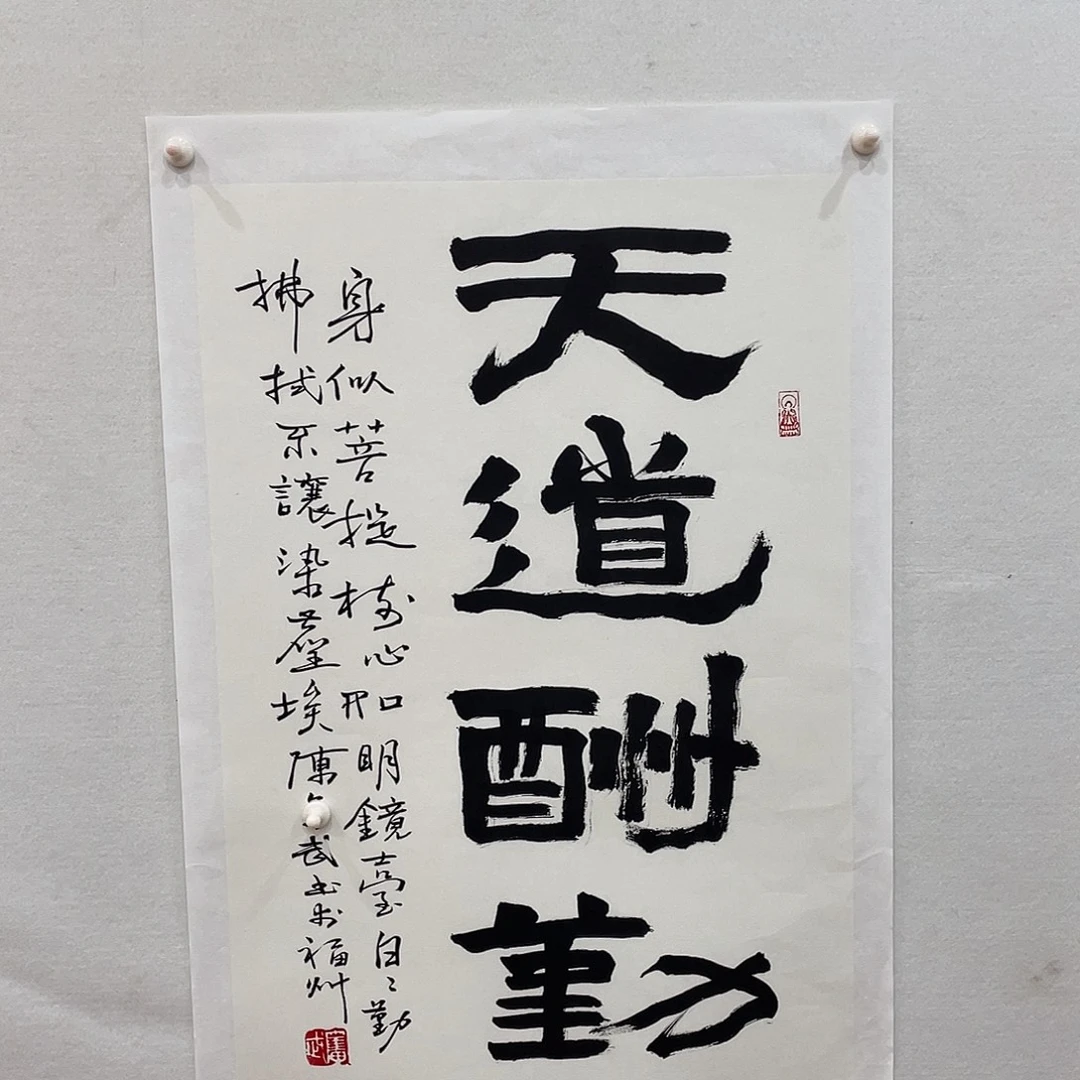 天道酬勤
身似菩提樹心如明鏡臺日〻勤
拂拭不讓染塵埃陳武書於福州